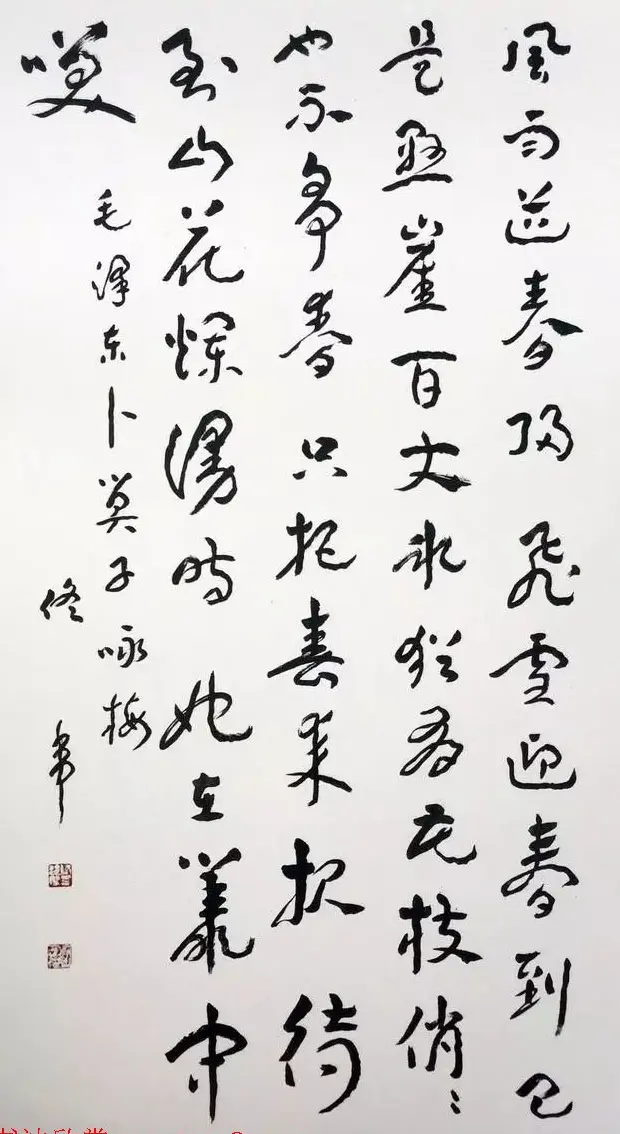 風雨送春归飛雪迎春到已
是懸崖百丈冰犹有花枝俏俏
也不争春只把春来报待
到山花烂漫时她在叢中
咲
毛泽东卜算子咏梅
佟韦